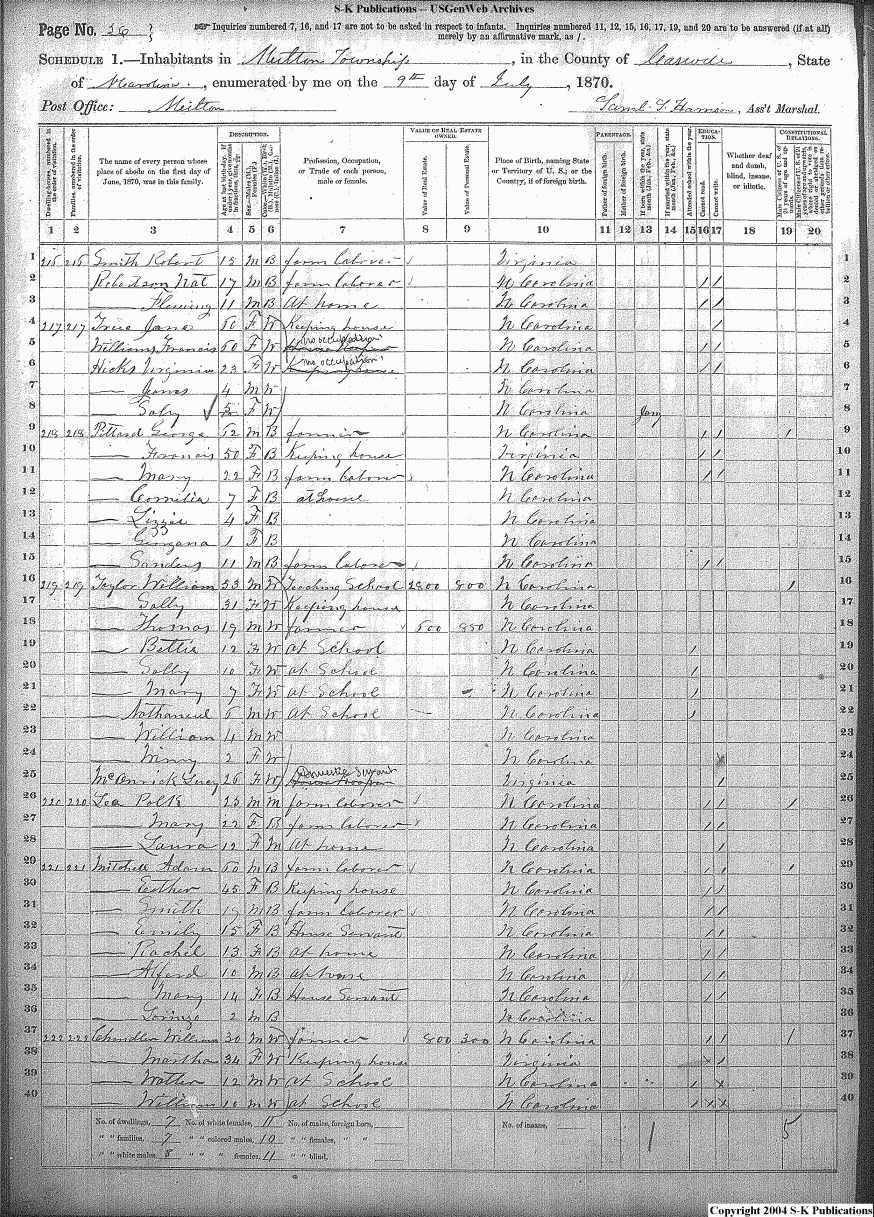 S-K Publications -- USGenWeb Archives
Page No. 36
Inquiries numbered 7, 16, and 17 are not to be asked in respect to infants. Inquiries numbered 11, 12, 15, 16, 17, 19, and 20 are to be answered (if at all) merely by an affirmative mark, as /.
SCHEDULE 1.—Inhabitants in Milton Township, in the County of Caswell, State
of N Carolina, enumerated by me on the 9th day of July, 1870.
Post Office: Milton
Saml. F. Harrison, Ass't Marshal.
Dwelling-houses, numbered in the order of visitation.
Families, numbered in the order of visitation.
The name of every person whose place of abode on the first day of June, 1870, was in this family.
DESCRIPTION.
Profession, Occupation, or Trade of each person, male or female.
VALUE OF REAL ESTATE OWNED.
Value of Real Estate.
Value of Personal Estate.
Place of Birth, naming State or Territory of U. S.; or the Country, if of foreign birth.
PARENTAGE.
Father of foreign birth.
Mother of foreign birth.
EDUCATION.
Attended school within the year.
Cannot read.
Cannot write.
Whether deaf and dumb, blind, insane, or idiotic.
CONSTITUTIONAL RELATIONS.
1 2 3 4 5 6 7 8 9 10 11 12 13 14 15 16 17 18 19 20
1 Smith Robert 15 M B farm laborer Virginia 1
2 Robertson Nat 17 M B farm laborer N Carolina / / 2
3 — Fleming 11 M B At home N Carolina / / 3
4 217 217 Jane 60 F W Keeping house N Carolina / 4
5 Williams Francis 60 F W no occupation N Carolina / / 5
6 Hicks Virginia 23 F W no occupation N Carolina / / 6
7 — James 4 M W N Carolina 7
8 — F W N Carolina Jany 8
9 218 218 Pittard George 62 M B farmer N Carolina / / / 9
10 — Francis 50 F B Keeping house Virginia / / 10
11 — Mary 22 F B farm laborer N Carolina / / 11
12 — Cornilia 7 F B at home N Carolina 12
13 — Lizzie 4 F B N Carolina 13
14 — Georgana 1 F B N Carolina 14
15 — Sanders 11 M B farm laborer N Carolina / / 15
16 219 219 Taylor William 53 M W Teaching School 2800 800 N Carolina / 16
17 — Sally 31 F W Keeping house N Carolina 17
18 — Thomas 19 M W farmer 850 N Carolina 18
19 — Bettie 12 F W at School N Carolina / 19
20 — Sally 10 F W at School N Carolina / 20
21 — Mary 7 F W at School N Carolina / 21
22 — Nathaniel 6 M W At School N Carolina / 22
23 — William 4 M W N Carolina 23
24 — 2 F W N Carolina 24
25 Lucy 26 F W Domestic Servant Virginia / 25
26 220 220 Lea Polk 23 M M farm laborer N Carolina / / / 26
27 — Mary 22 F B farm laborer N Carolina / / 27
28 — Laura 12 F M At home N Carolina / 28
29 221 221 Mitchell Adam 60 M B farm laborer N Carolina / / / 29
30 — Esther 45 F B Keeping house N Carolina / / 30
31 — Smith 19 M B farm laborer N Carolina / / 31
32 — Emily 15 F B House Servant N Carolina / / 32
33 — Rachel 13 F B At home N Carolina / / 33
34 — Alford 10 M B at home N Carolina / / 34
35 — Mary 14 F B House Servant N Carolina / / 35
36 — 2 M B N Carolina 36
37 222 222 Chandler William 30 M W farmer 800 300 N Carolina / / / 37
38 — Martha 34 F W Keeping house Virginia 38
39 — Walter 12 M W At School N Carolina 39
40 — William 10 M W at School N Carolina 40
No. of dwellings, 7 No. of white females, 11 No. of males, foreign born, No. of insane,
" " families, 7 " " colored males, 10 " " females, " " 1 5
" " white males, 8 " " " females, 11 " " blind,
Copyright 2004 S-K Publications